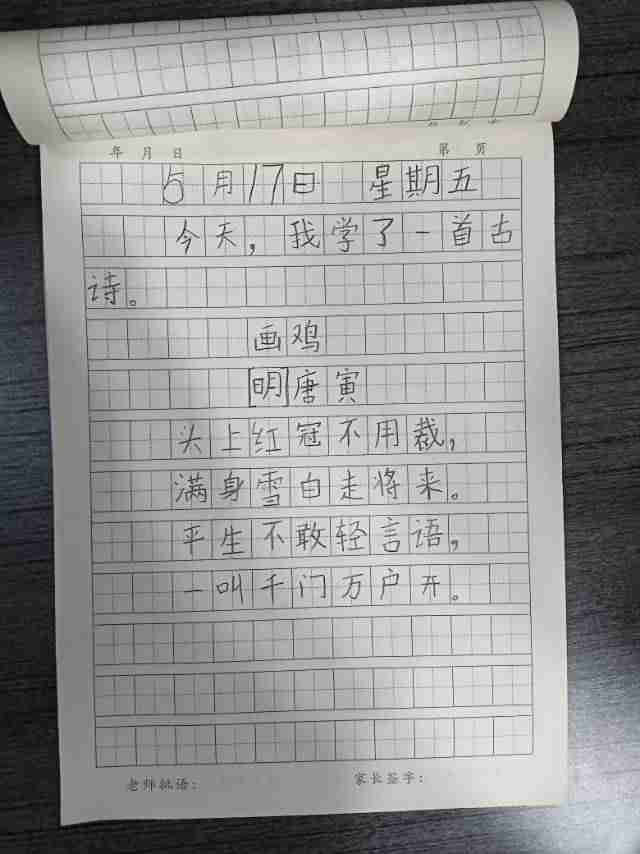 年 月 日 第 页
5月17日 星期五
今天，我学了一首古
诗。
画鸡
[明]唐寅
头上红冠不用裁，
满身雪白走将来。
平生不敢轻言语，
一叫千门万户开。
老师批语： 家长签字：